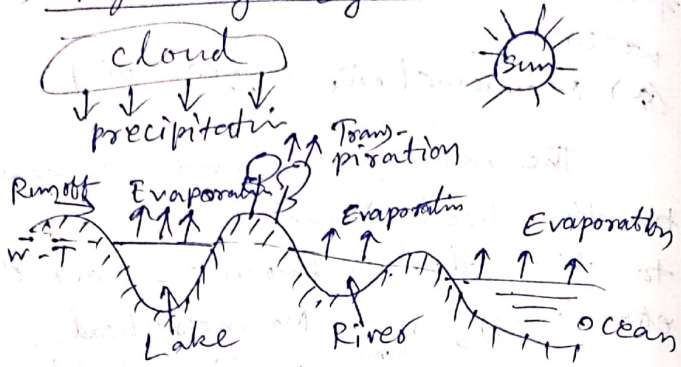 cloud
Sun
precipitatin
Trans-
piration
Runoff
Evaporatin
Evaporatin
Evaporation
W.T
Lake
River
Ocean